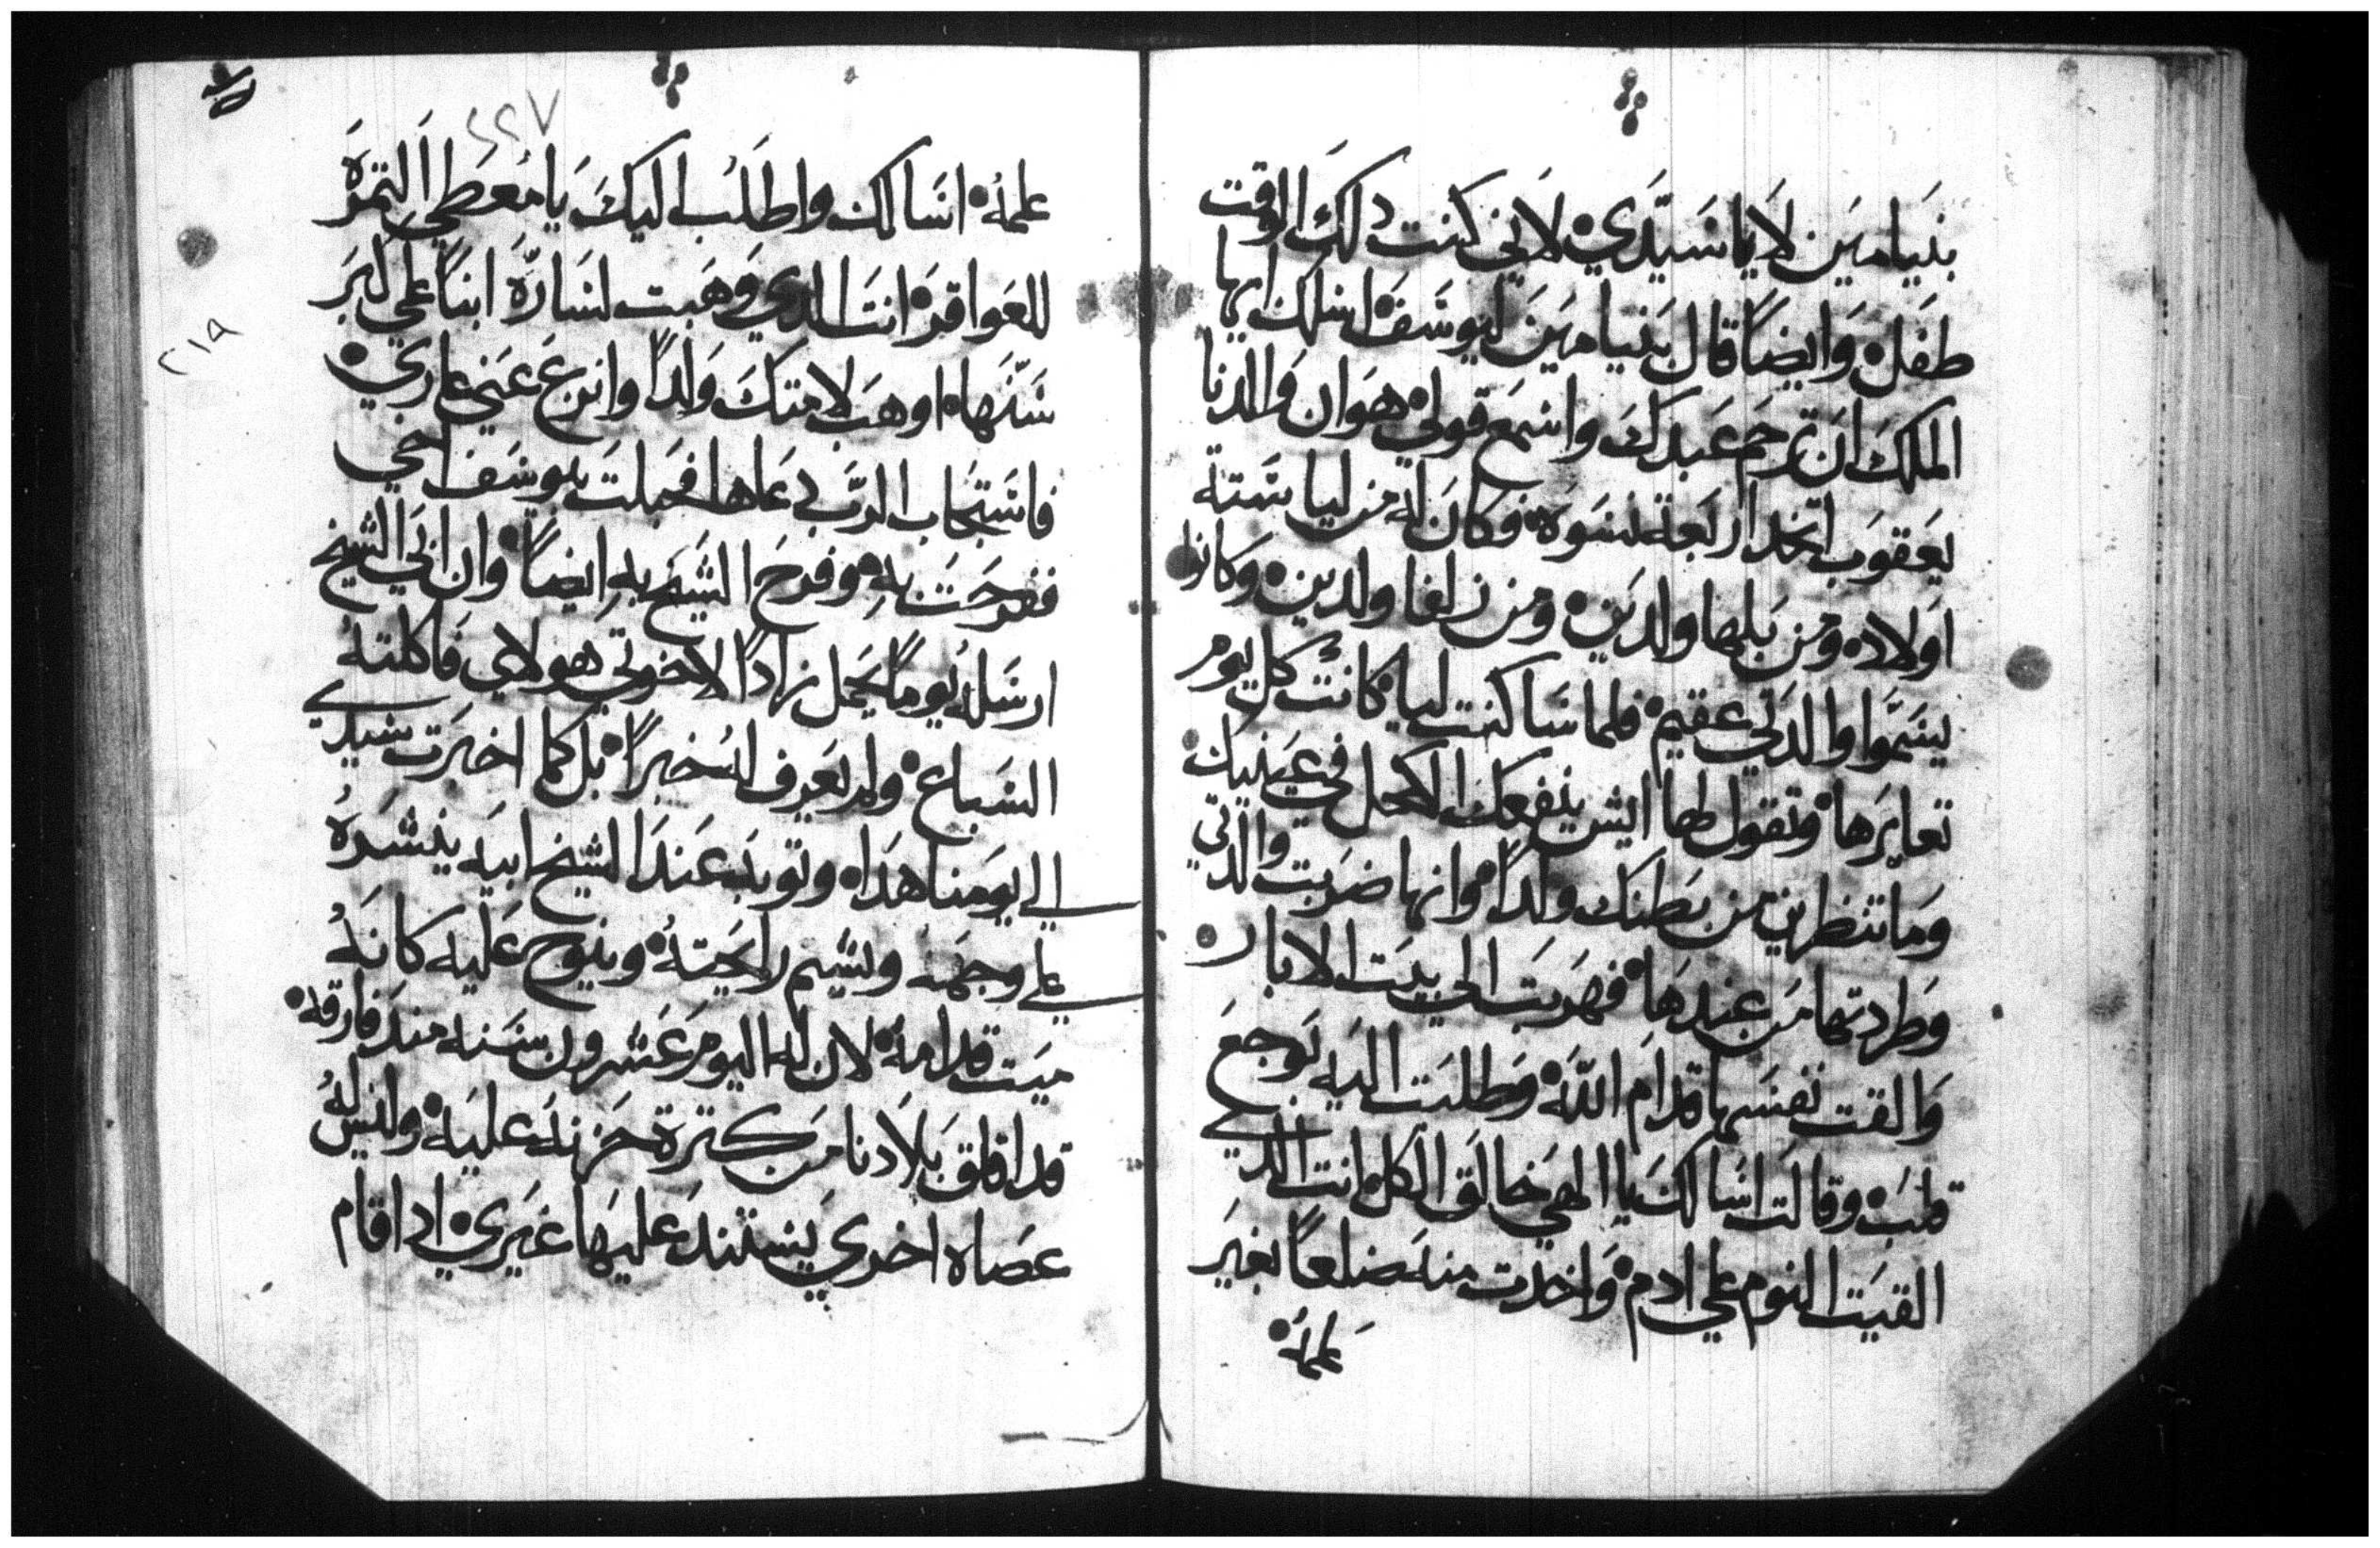 بنيامين لا يا سيدي لاني كنت دلك الوقت
طفل وايضاً قال بنيامين ليوسف اسلك ايها
الملك ان ترحم عبدك واسمع قولي هوان والدنا
يعقوب اتخد اربعة نسوة فكان له من ليا ستة
اولاد ومن بلها ولدين ومن زلفا ولدين وكانوا
يسموا والدتي عقيم فلما ساكنت ليا كانت كل يوم
تعايرها وتقول لها ايش ينفعك الكحل في عينيك
وما تنظرين من بطنك ولداً وانها ضربت والدتي
وطردتها من عندها فهربت الي بيت الابار
والقت نفسها قدام الله وطلبت اليه بوجع
قلب وقالت اسالك يا الهي خالق الكل انت الدي
القيت النوم علي ادم واخدت منه ضلعاً بغير
علمه
٢٢٧
علمه اسالك واطلب اليك يا معطي التمرة
للعواقر انت الدي وهبت لسارة ابناً علي كبر
سنها اوهب لامتك ولداً وانزع عني عاري
فاستجاب الرب دعاها فحبلت بيوسف اخي
ففرحت به وفرح الشيخ به ايضاً وان ابي الشيخ
ارسله يوماً يحمل زاداً لاخوتي هولاي فاكلته
السباع ولم نعرف له خبراً بل كما اخبرت سيدي
الي يومنا هدا وتوبه عند الشيخ ابيه ينشره
علي وجهه ويشيم رايحته وينوح عليه كانه
ميت قدامه لان له اليوم عشرون سنه مند فارقه
قد اقلق بلادنا من كترة حزنه عليه وليس له
عصاه اخري يستند عليها غيري ادا قام
٢١٩